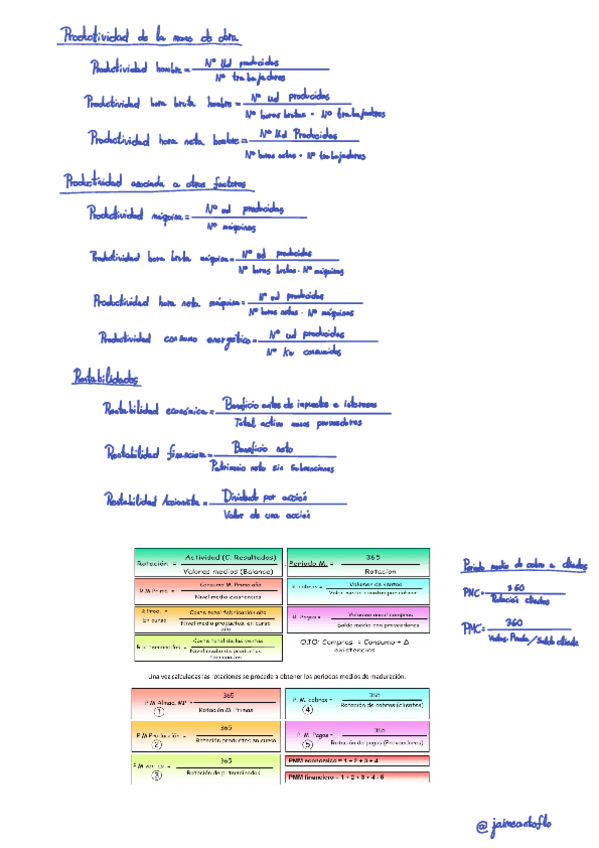 Productividad de la mano de obra
Productividad hombre = Nº Ud producidas
Nº trabajadores
Productividad hora bruta hombre = Nº ud producidas
Nº horas brutas · Nº trabajadores
Productividad hora neta hombre = Nº Ud Producidas
Nº horas netas · Nº trabajadores
Productividad asociada a otros factores
Productividad máquina = Nº ud producidas
Nº máquinas
Productividad hora bruta máquina = Nº ud producidas
Nº horas brutas · Nº máquinas
Productividad hora neta máquina = Nº ud producidas
Nº horas netas · Nº máquinas
Productividad consumo energético = Nº ud producidas
Nº Kw consumidos
Rentabilidades
Rentabilidad económica = Beneficio antes de impuestos e intereses
Total activo menos proveedores
Rentabilidad financiera = Beneficio neto
Patrimonio neto sin subvenciones
Rentabilidad Accionista = Dividendo por acción
Valor de una acción
Rotación = Actividad (C. Resultados)
Valores medios (Balance)
Periodo M. = 365
Rotacion
Periodo medio de cobro a clientes
PMC = 360
Rotación clientes
PMC = 360
Ventas / Saldo cliente
R M Prima = Consumo M. Prima año
Nivel medio existencias
R cobros = Volumen de ventas
R Prod. en curso = Coste total fabricación año
Nivel medio productos en curso año
R. Pagos = Volumen anual compras
Saldo medio con proveedores
Coste total de las ventas
Nivel medio de productos terminados
OJO: Compras = Consumo + Δ
existencias
Una vez calculadas las rotaciones se procede a obtener los periodos medios de maduración.
P.M Almac. MP = 365
Rotación M. Primas
1
P. M. cobros = 365
Rotación de cobros (clientes)
4
P.M Producción = 365
Rotación productos en curso
2
P. M. Pagos = 365
Rotación de pagos (Proveedores)
5
365
Rotación de p. terminados
3
PMM economico = 1 + 2 + 3 + 4
PMM financiero = 1 + 2 + 3 + 4 - 5